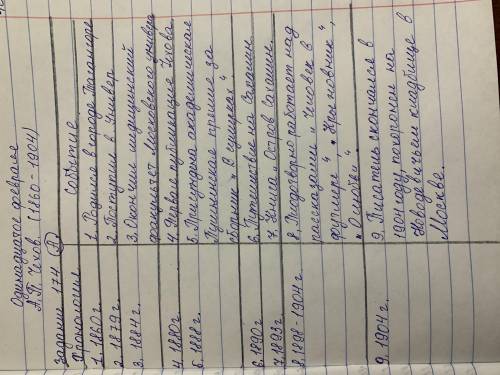 Одинадцатое февраля
А. П. Чехов. (1860-1904)
Задание 174 А
Хронология Событие
1. 1860 г. 1. Родился в городе Таганроге
2. 1879 г. 2. Поступил в Универ.
3. 1884 г. 3. Окончил медицинский
факультет Московского универ
4. 1880 г. 4. Первая публикация Чехова
5. 1888 г. 5. Присуждена академическая
Пушкинская премия за
сборник "В сумерках"
6. 1890 г. 6. Путешествие на Сахалин.
7. 1893 г. 7. Книга „Остров Сахалин.
8. 1898-1904 г. 8. Плодотворно работает над
рассказами „Человек в
футляре" „Крыжовник",
"О любви".
9. 1904 г. 9. Писатель скончался в
1904 году, похоронен на
Новодевичьем кладбище в
Москве.